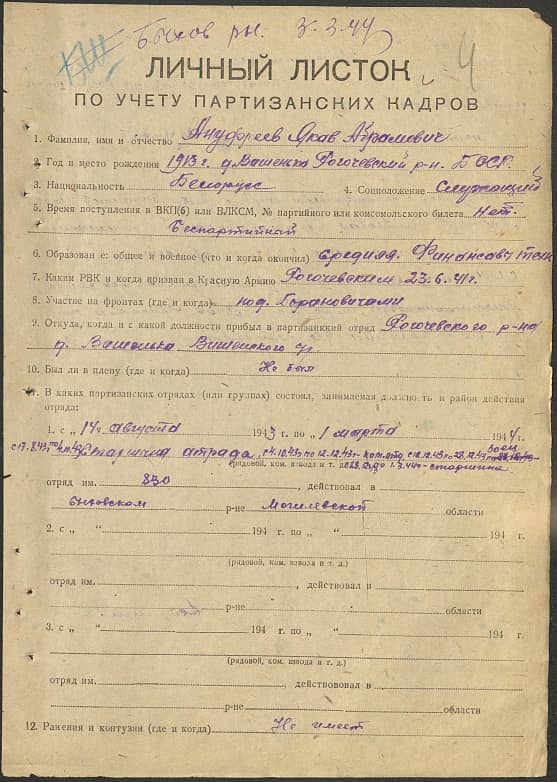 Быхов рн. 3.3.44
4
ЛИЧНЫЙ ЛИСТОК
ПО УЧЕТУ ПАРТИЗАНСКИХ КАДРОВ
1. Фамилия, имя и отчество Ануфреев Яков Абрамович
2. Год и место рождения 1913 г. д. Вашенька Рогочевский р-н. БССР.
3. Национальность Белорус 4. Соцположение Служащий
5. Время поступления в ВКП(б) или ВЛКСМ, № партийного или комсомольского билета нет.
Беспартийный
6. Образован е: общее и военное (что и когда окончил) Средняя. Финансовы техн
7. Каким РВК и когда призван в Красную Армию Рогочевским 23.6.41г.
8. Участие на фронтах (где и когда) под Барановичами
9. Откуда, когда и с какой должности прибыл в партизанский отряд Рогочевского р-на
д.
10. Был ли в плену (где и когда) Не был
11. В каких партизанских отрядах (или группах) состоял, занимаемая должность и район действия
отряда:
1. с „ 14 „ августа 1943 г. по „ 1 марта 1944 г.
старшина отряда, с 4.10.43г по 12.12.43г. ком.отд, с 12.12.43 по 28.12.43 боец
(рядовой, ком. взвода и т. д.) с 28.12. до 1.3.44г - старшина
отряд им. 830 , действовал в
Быховском р-не Могилевской области
2. с „ “ 194 г. по „ “ 194 г.
(рядовой, ком. взвода и т. д.)
отряд им. , действовал в
р-не области
3. с „ “ 194 г. по „ “ 194 г.
(рядовой, ком. взвода и т. д.)
отряд им. , действовал в
р-не области
12. Ранения и контузии (где и когда) Не имеет